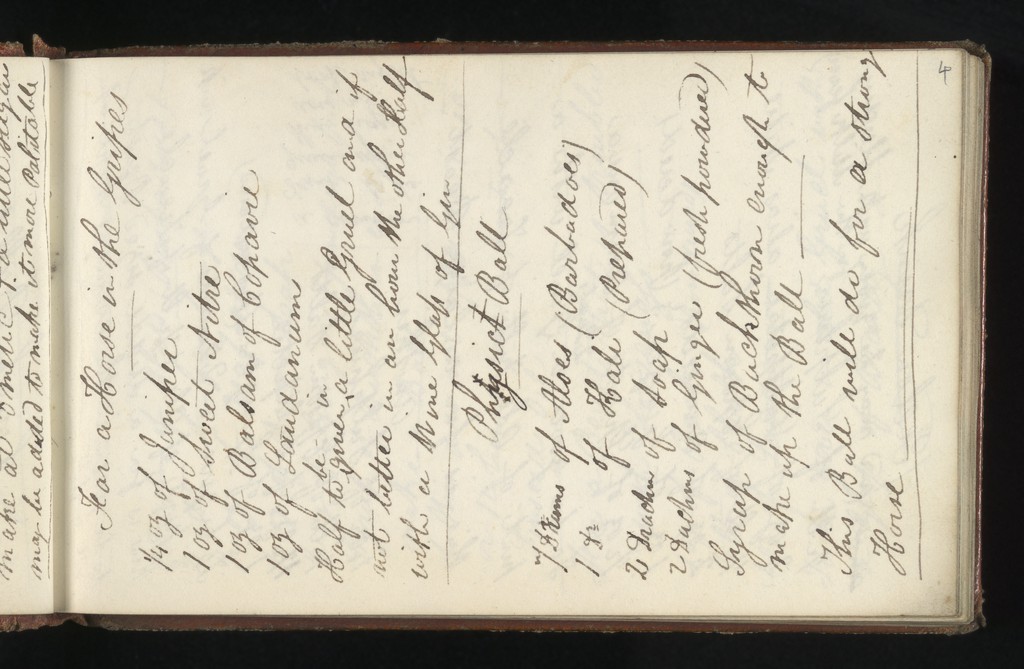 make at
may be added to make it more Palatable
4
For a Horse in the Gripes
1/4 oz of Juniper
1 oz of Sweet Nitre
1 oz of Balsam of Copavie
1 oz of Laudanum
Half to be given in a little Gruel and if
not better in an hour the other Half
with a Wine Glass of Gin
Physict Ball
7 Drams of Aloes (Barbadoes)
1 Do of Kali (Prepared)
2 Drachm of Soap
2 Drachms of Ginger (fresh powdered)
Syrup of Buckthorn enough to
make up the Ball
This Ball will do for a strong
Horse